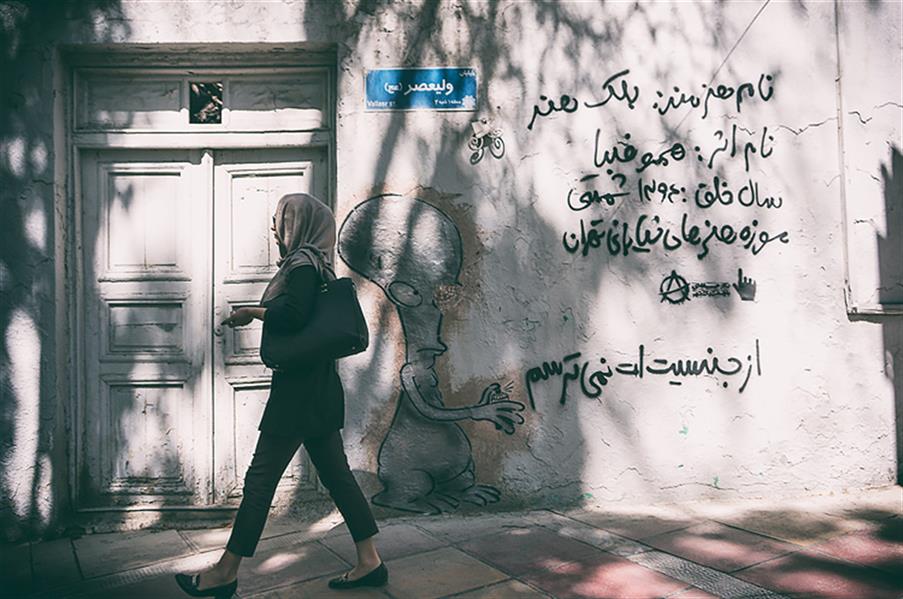 خیابان
ولیعصر (عج)
Valiasr st
نام هنرمند: بلک هند
نام اثر: هموفبیا
سال خلق: شمسی
موزه هنرهای خیابانی تهران
از جنسیت ات نمی ترسم